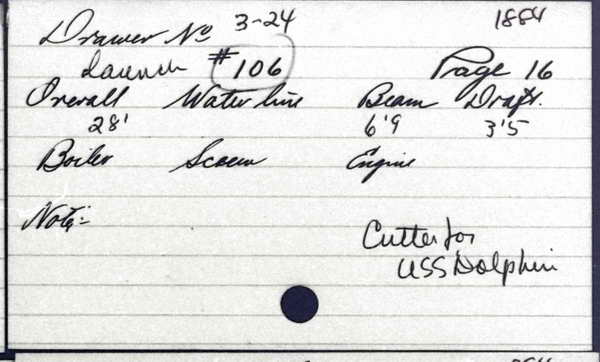 Drawer No 3-24 1884
Launch #106 Page 16
Overall Water line Beam Draft.
28' 6'9 3'5
Boiler Screw Engine
Note:-
Cutter for
USS Dolphin